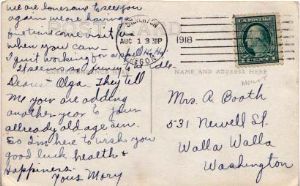 we are lonesome to see you
again we are having
fine time come visit us
when you can.
I quit working for a spell
Dear Olga. They tell
me you are adding
another year to your
already old age sum.
So I'm here to wish you
good luck, health, &
happiness.
Yours Mary
AUG 13
1918
NAME AND ADDRESS HERE
Mrs. A Booth
531 Newell St
Walla Walla
Washington